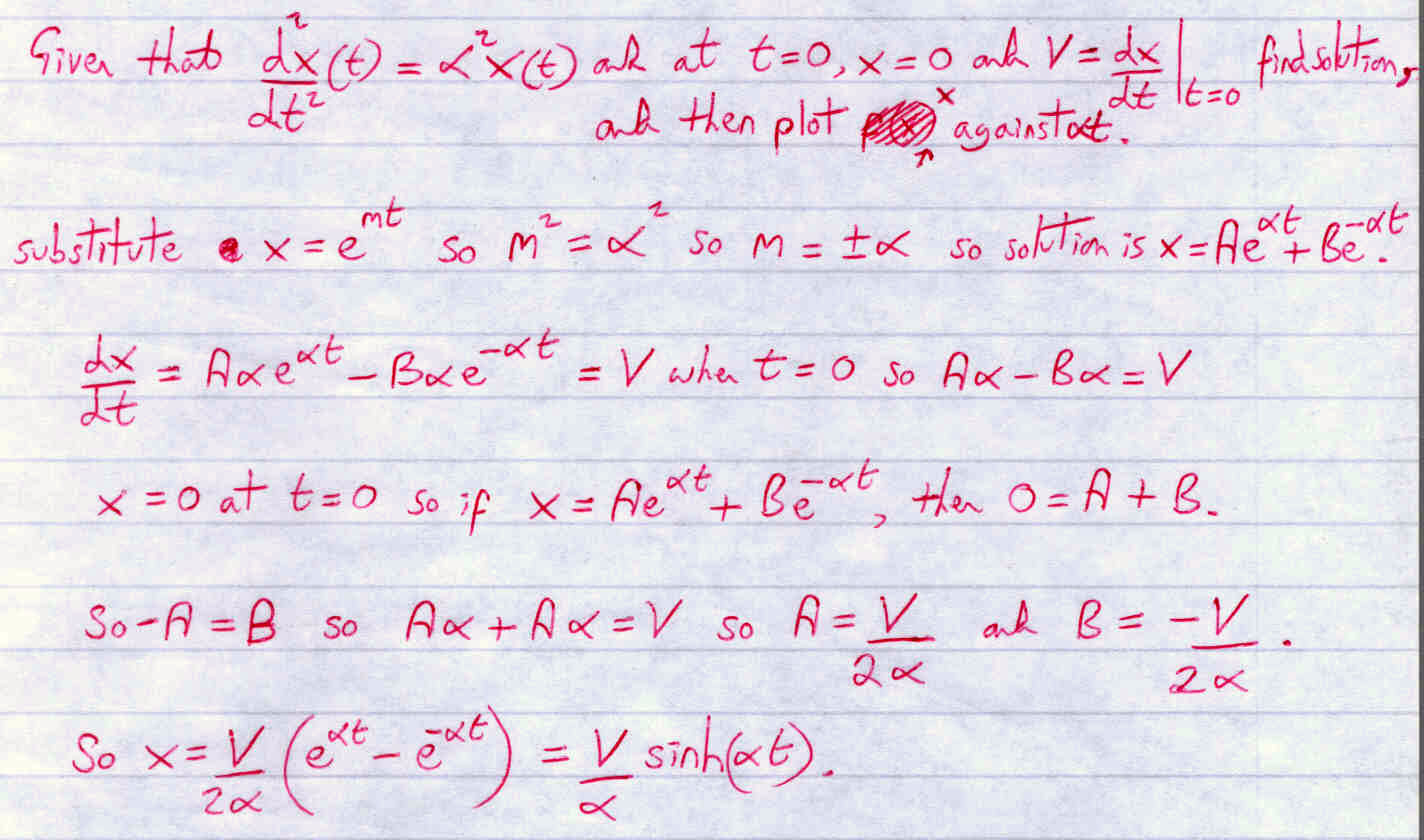 Given that d²x/dt²(t) = α²x(t) and at t=0, x=0 and V = dx/dt|t=0 find solution,
and then plot x against αt.
substitute x = e^mt so m² = α² so m = ±α so solution is x = Ae^αt + Be^-αt.
dx/dt = Aαe^αt - Bαe^-αt = V when t = 0 so Aα - Bα = V
x = 0 at t = 0 so if x = Ae^αt + Be^-αt, then 0 = A + B.
So -A = B so Aα + Aα = V so A = V/2α and B = -V/2α.
So x = V/2α (e^αt - e^-αt) = V/α sinh(αt).